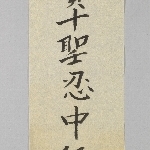 十聖忍中